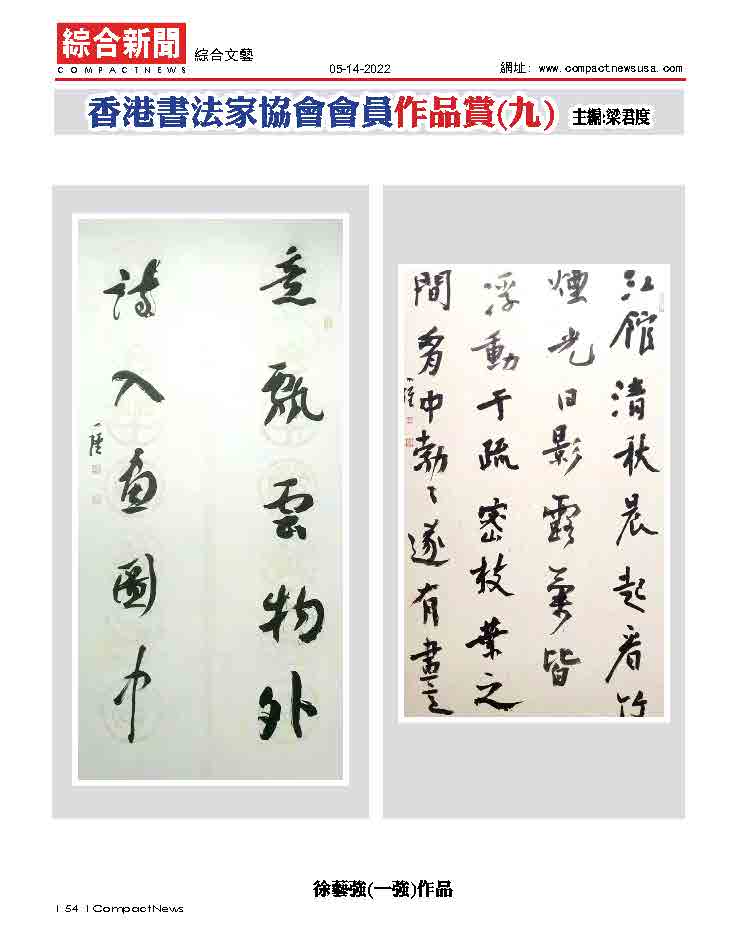 綜合新聞
COMPACTNEWS
綜合文藝
05-14-2022
網址: www.compactnewsusa.com
香港書法家協會會員作品賞(九)
主編:梁君度
意飄雲物外
詩入畫圖中
一強
江館清秋晨起看竹
煙光日影露氣皆
浮動于疏密枝葉之
間胸中勃々遂有畫意
一強
徐藝強(一強)作品
| 54 | CompactNews